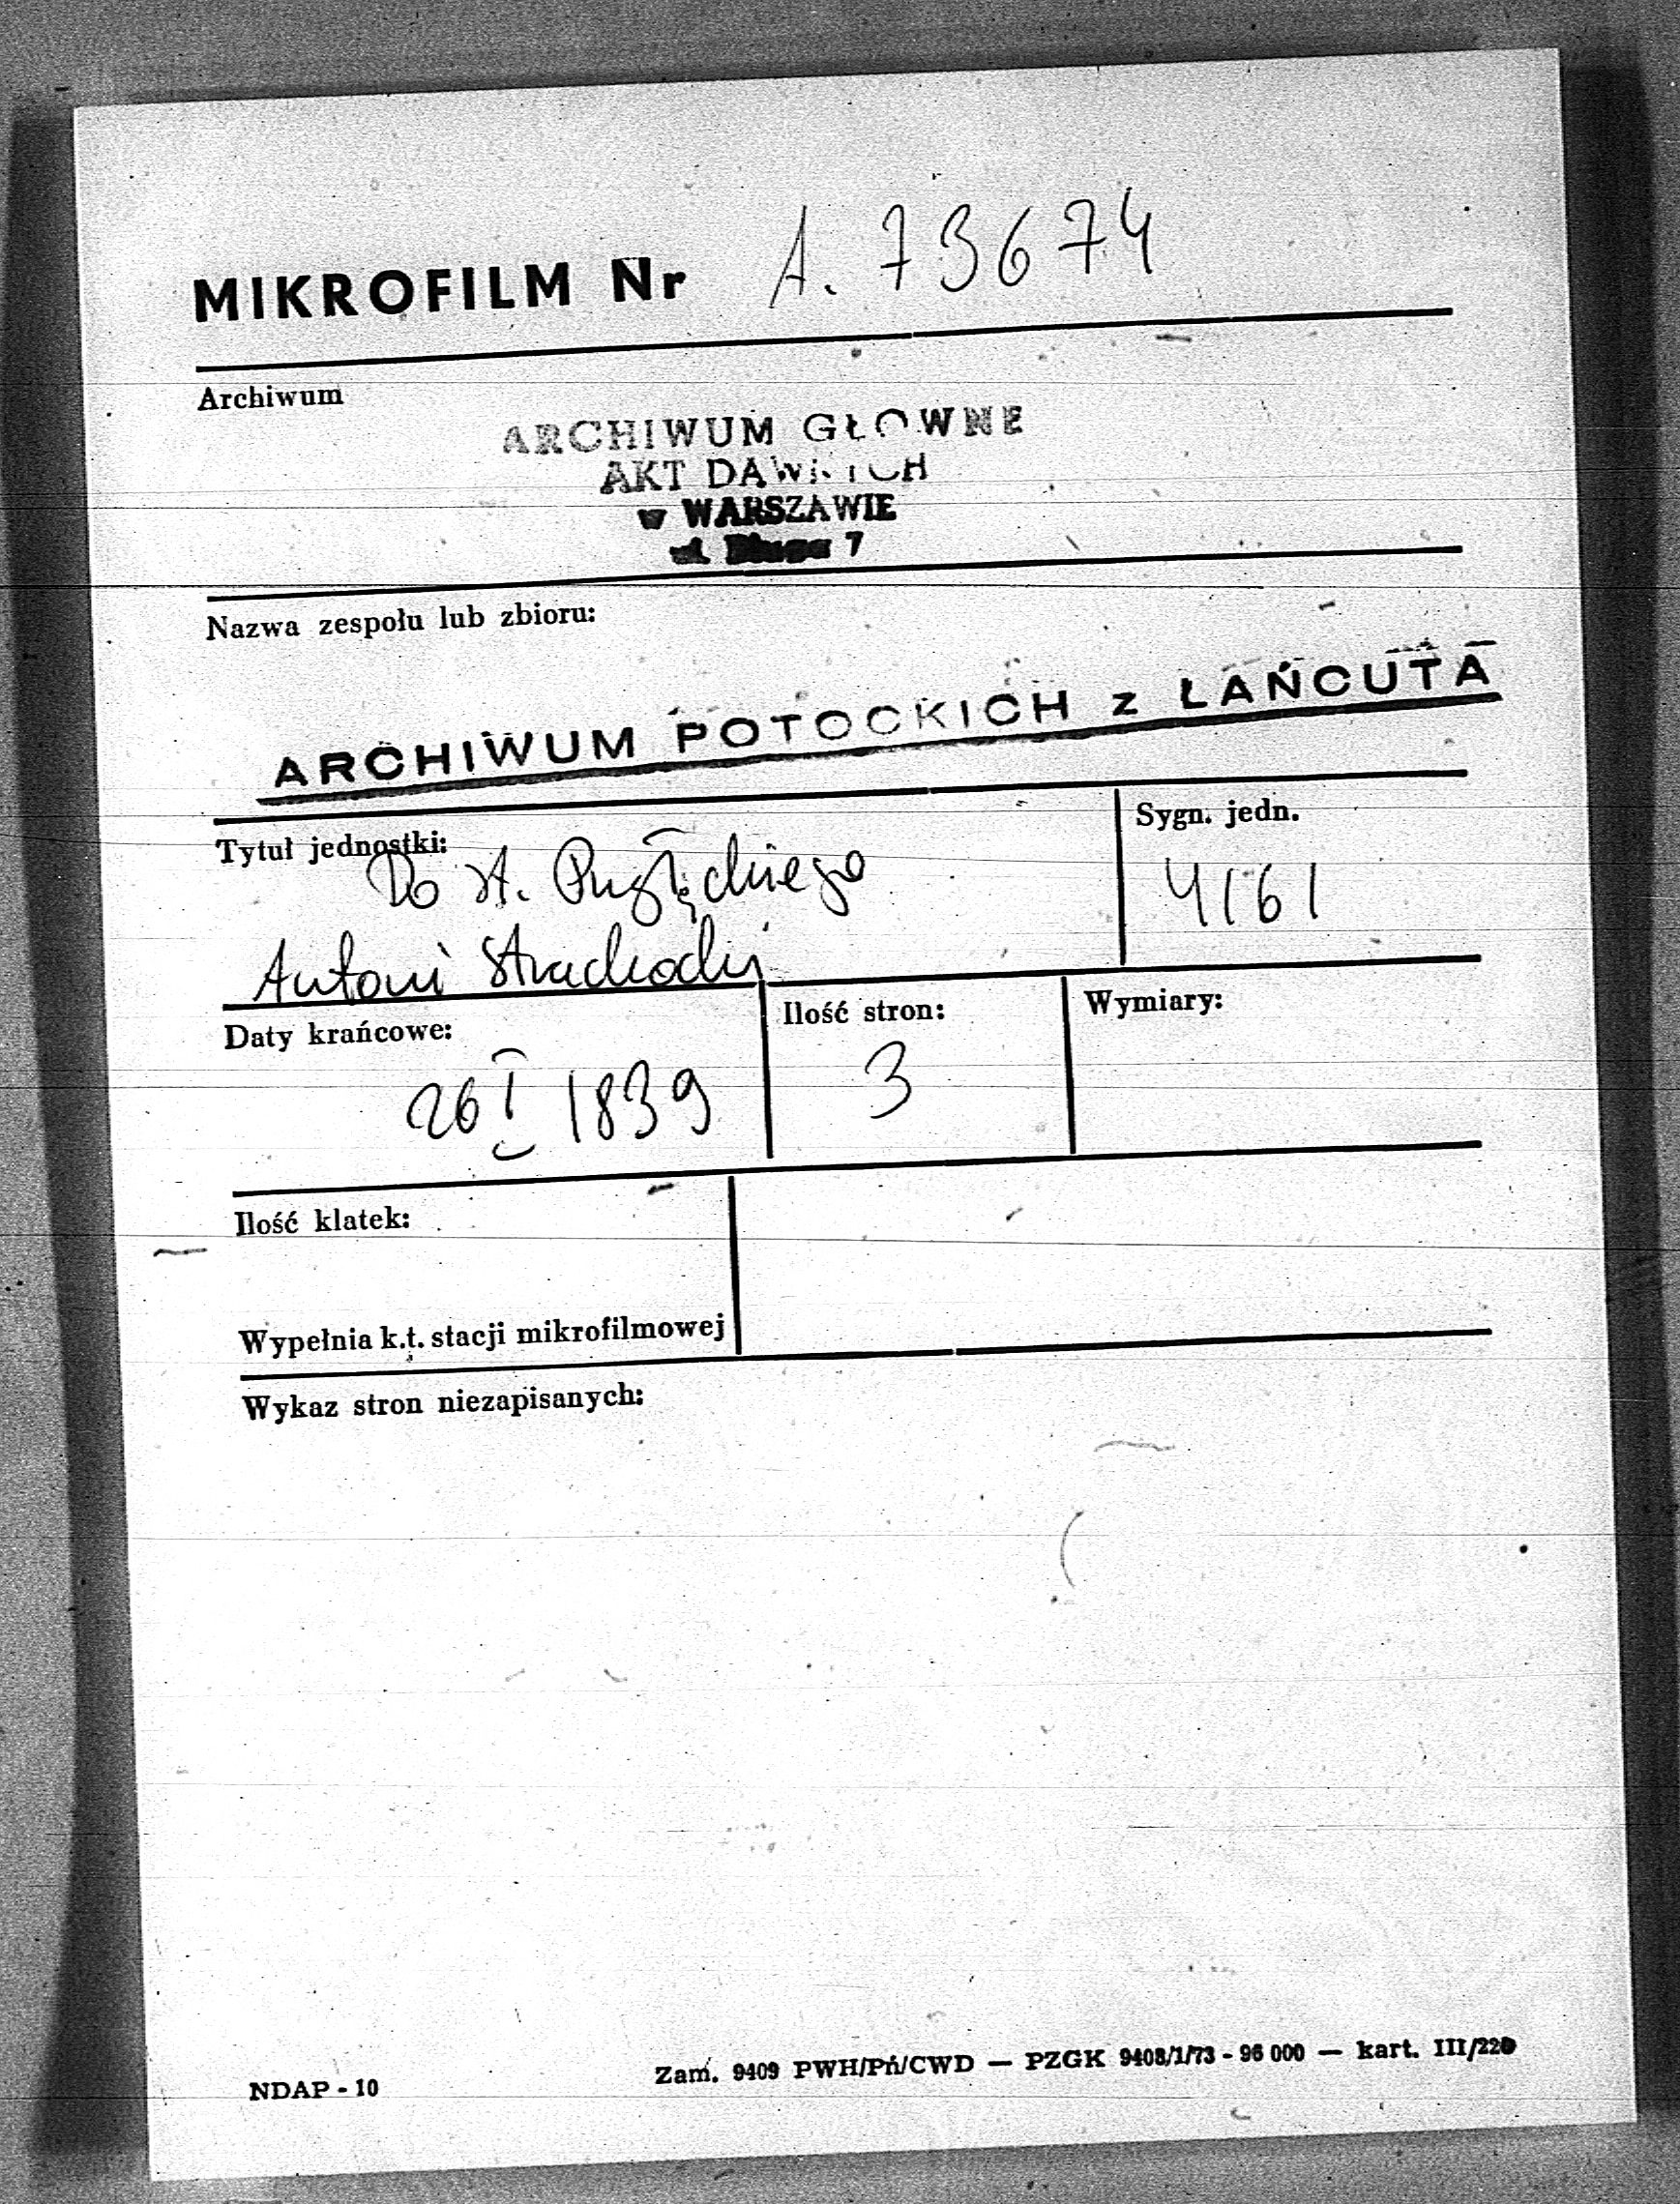 MIKROFILM Nr A. 73674
Archiwum
ARCHIWUM GŁOWNE
AKT DAWNYCH
w WARSZAWIE
ul. Długa 7
Nazwa zespołu lub zbioru:
ARCHIWUM POTOCKICH z ŁAŃCUTA
Tytuł jednostki:
Do St.
Antoni
Sygn. jedn.
4161
Daty krańcowe:
26 I 1839
Ilość stron:
3
Wymiary:
Ilość klatek:
Wypełnia k.t. stacji mikrofilmowej
Wykaz stron niezapisanych:
NDAP - 10
Zam. 9409 PWH/Pń/CWD — PZGK 9408/1/73 - 96 000 — kart. III/220